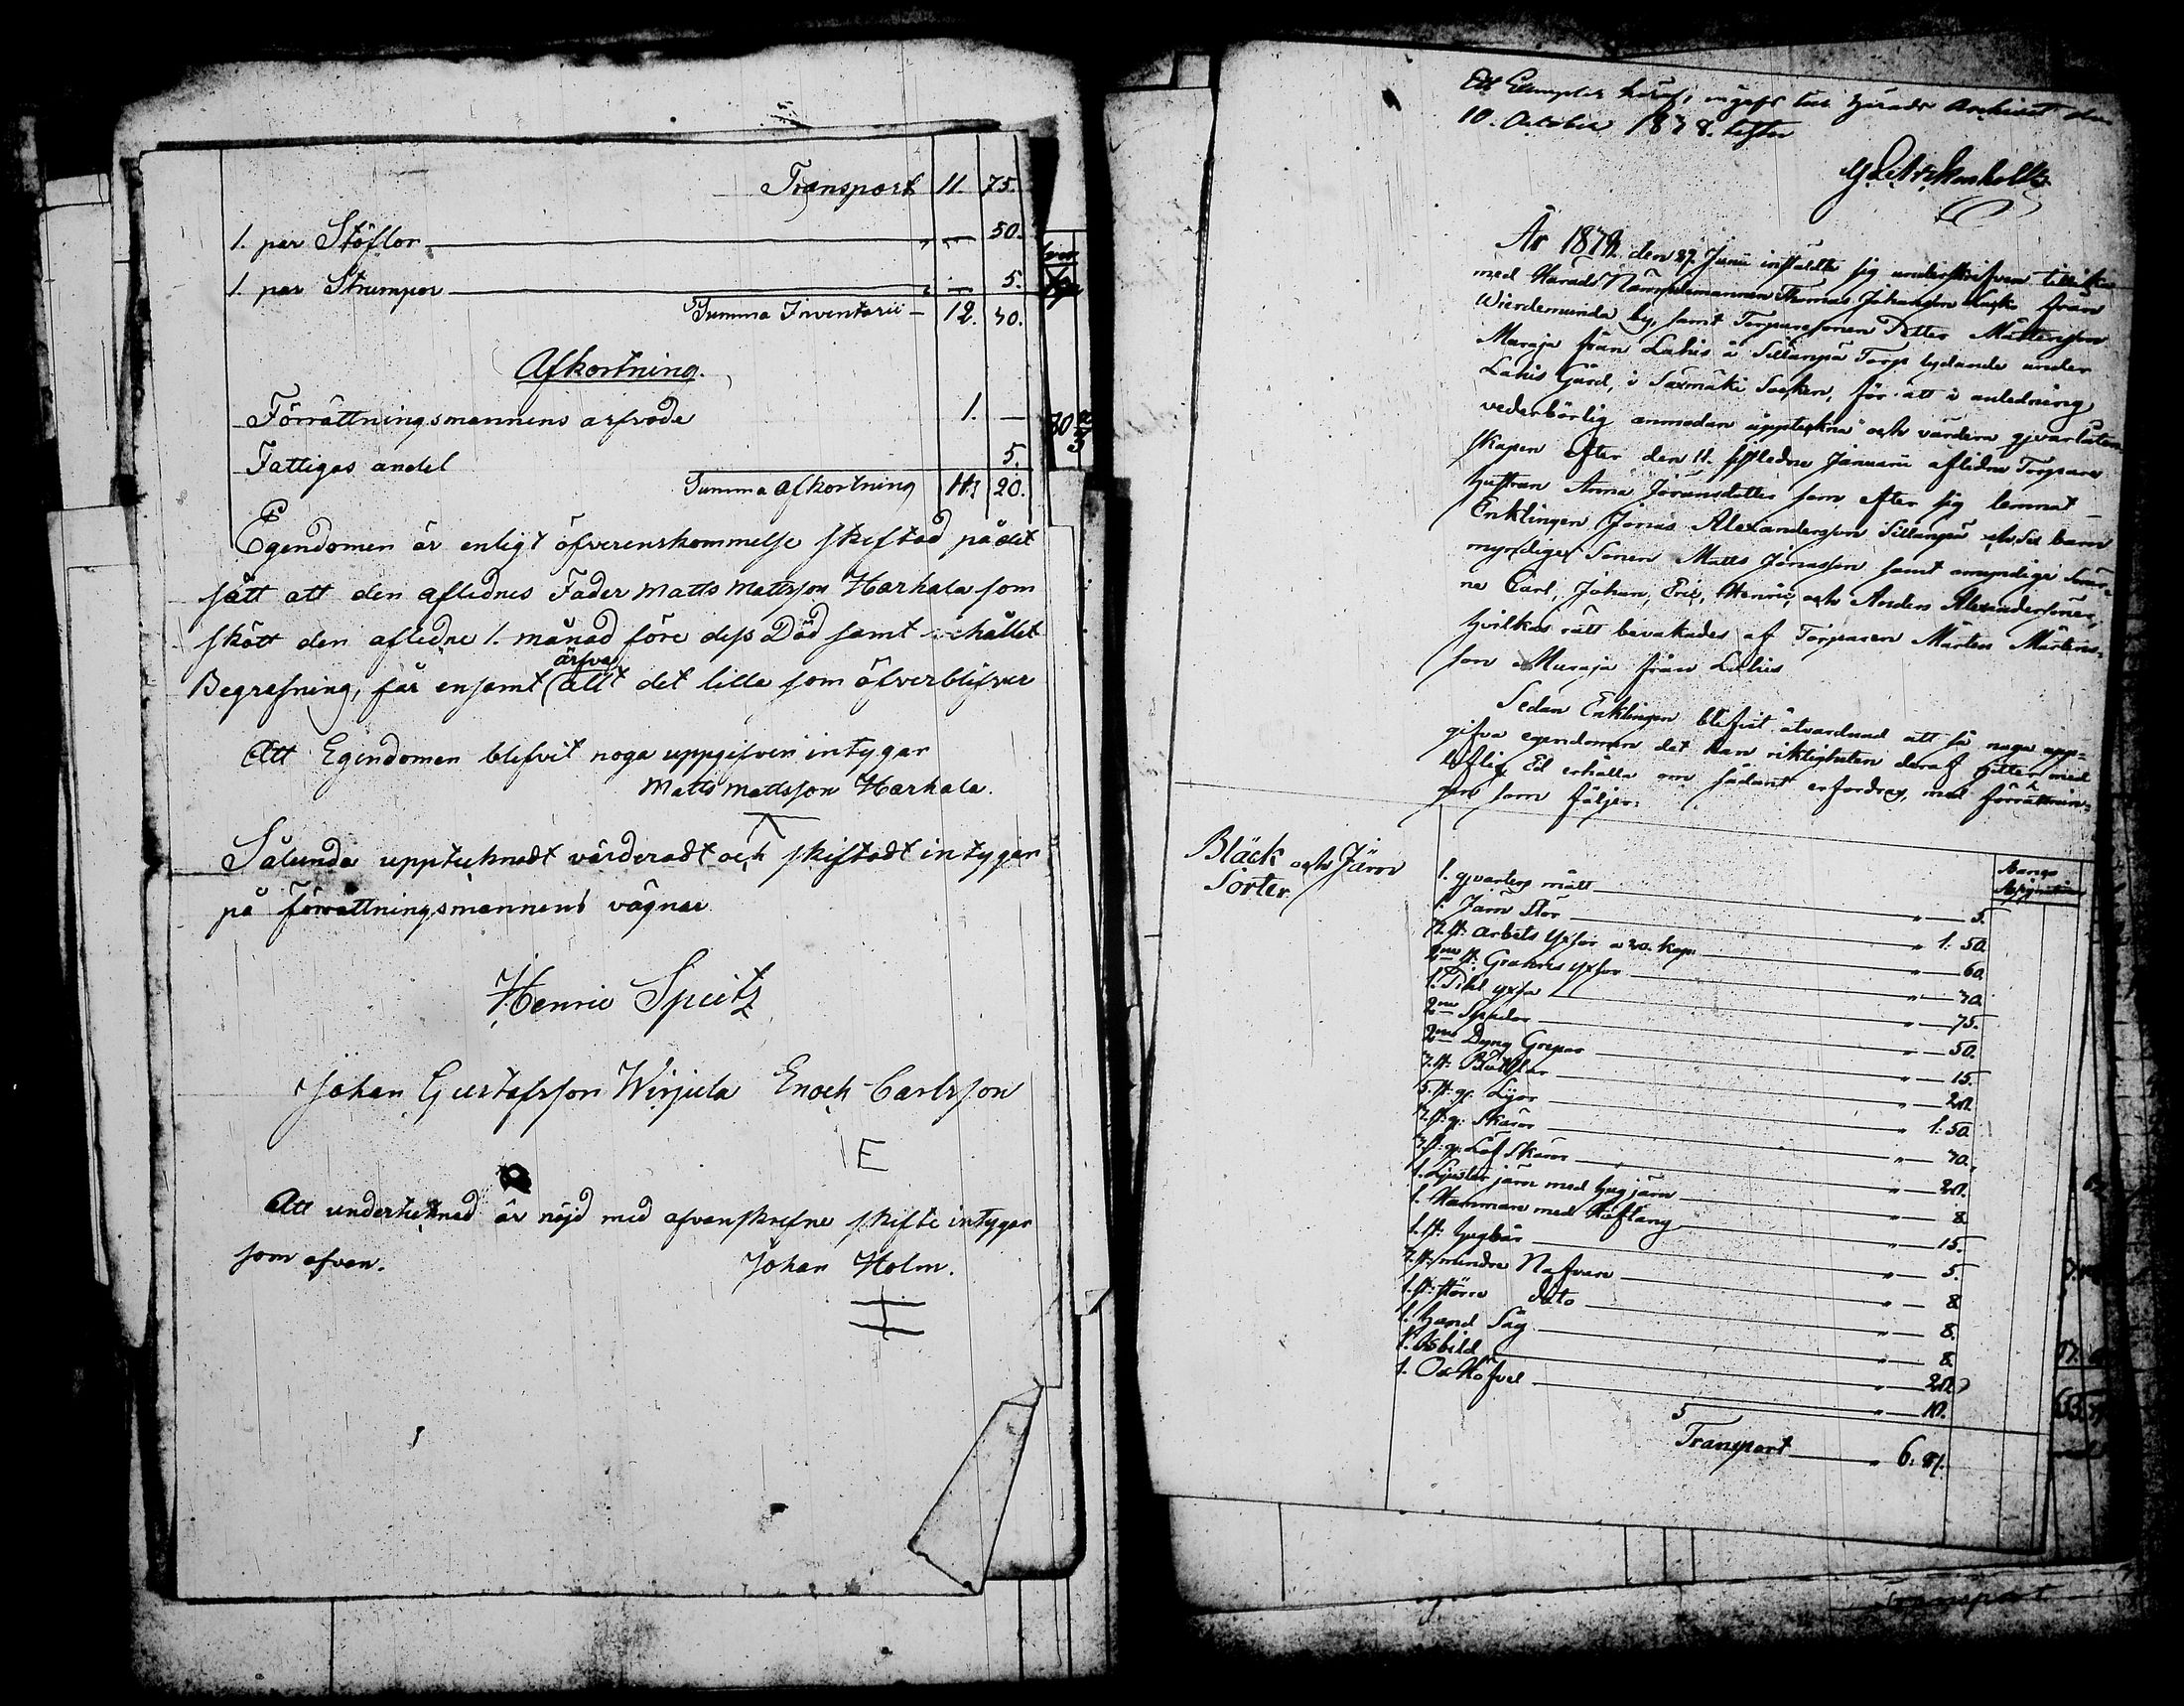 Transport 11. 75.
1. par Stöflor — „ — 50.
1. par Strumpor — „ — 5.
Summa Inventarii — 12. 30.
Afkortning.
Förrättningsmannens arfvode 1. —
Fattigas andel 5.
Summa afkortning 20.
Egendomen är enligt öfverenskommelse skiftad på det
sätt att den aflednes Fader Matts Mattsson Harhala som
skött den afledne 1. månad före dess Död samt hållet
Begrafning, får ensamt ärfva allt det lilla som öfverblifver
Att Egendomen blefvit noga uppgifven intygar
Matts Mattsson Harhala.
Sålunda upptecknadt värderadt och skiftadt intygar
på förrättningsmannens vägnar
Henric Speitz
Johan Gustafsson Wirjula Enoch Carlsson
E
Att undertecknad är nöjd med ofvanskrefne skifte intygar
som ofvan. Johan Holm.
Ett Exemplar häraf, ingifvit till Härads Archivet den
10. October 1878. tester
År 1878 den 27. Junii instälde sig underskrifven tillika
med Härads Nämndemannen Thomas Johansson från
by, samt Torparesonen Petter Mårtensson
Muraja från Lahis å Sillanpä Torp lydande under
Lahis Gård, i Säxmäki Socken, för att i anledning
vederbörlig anmodan uppteckna och värdera qvarlåten-
skapen efter den 11. sistledne Januarii aflidne Torpare
hustrun Anna Jöransdotter som efter sig lemnat
Enklingen Jonas Alexandersson Sillanpä och sex barn
myndige Sonen Matts Jonasson samt omyndige Söner-
ne Carl, Johan, Eric, Henric och Anders Alexandersöner,
hvilkas rätt bevakades af Torparen Mårten Mårtens-
son Muraja från Lahis
Sedan Enklingen blefvit åtvarnad att så noga upp-
gifva egendomen det han riktigheten deraf gitter med
liflig Ed erhålla om sådant erfordras, med förrättnin-
gen som följer:
Bläck och Järn
Sorter
1. qvarters mått — „ — 5.
1. Järn Stör — „ 1: 50.
3. st: arbets Yxor a 20. kop: — „ — 60.
2ne st: Yxor — „ — 30.
1. Yxa — „ — 75.
2ne Spadar — „ — 50.
2ne Dyng Grepar — „ — 15.
5. st: gl: Lijor — „ 1: 50.
st: gl: Skäror — „ — 30.
st: gl: Löf Skäror — „ — 20.
1. Ljuster järn med hugjärn — „ — 8.
1. Hammare med Hoftång — „ — 15.
1. st: — „ — 5.
st: mindre Nafvare — „ — 8.
1. st: större dito — „ — 8.
1. Hand Såg — „ — 8.
1. Osbild
1. — „ — 10.
Transport — „ 6: 87.
Transport